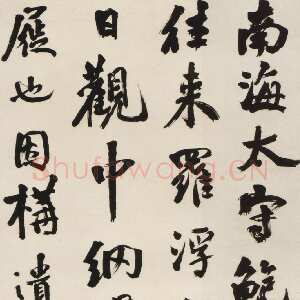 南海太守鮑
往来羅浮
日觀中納
履也因構遺
Shufawang.CN